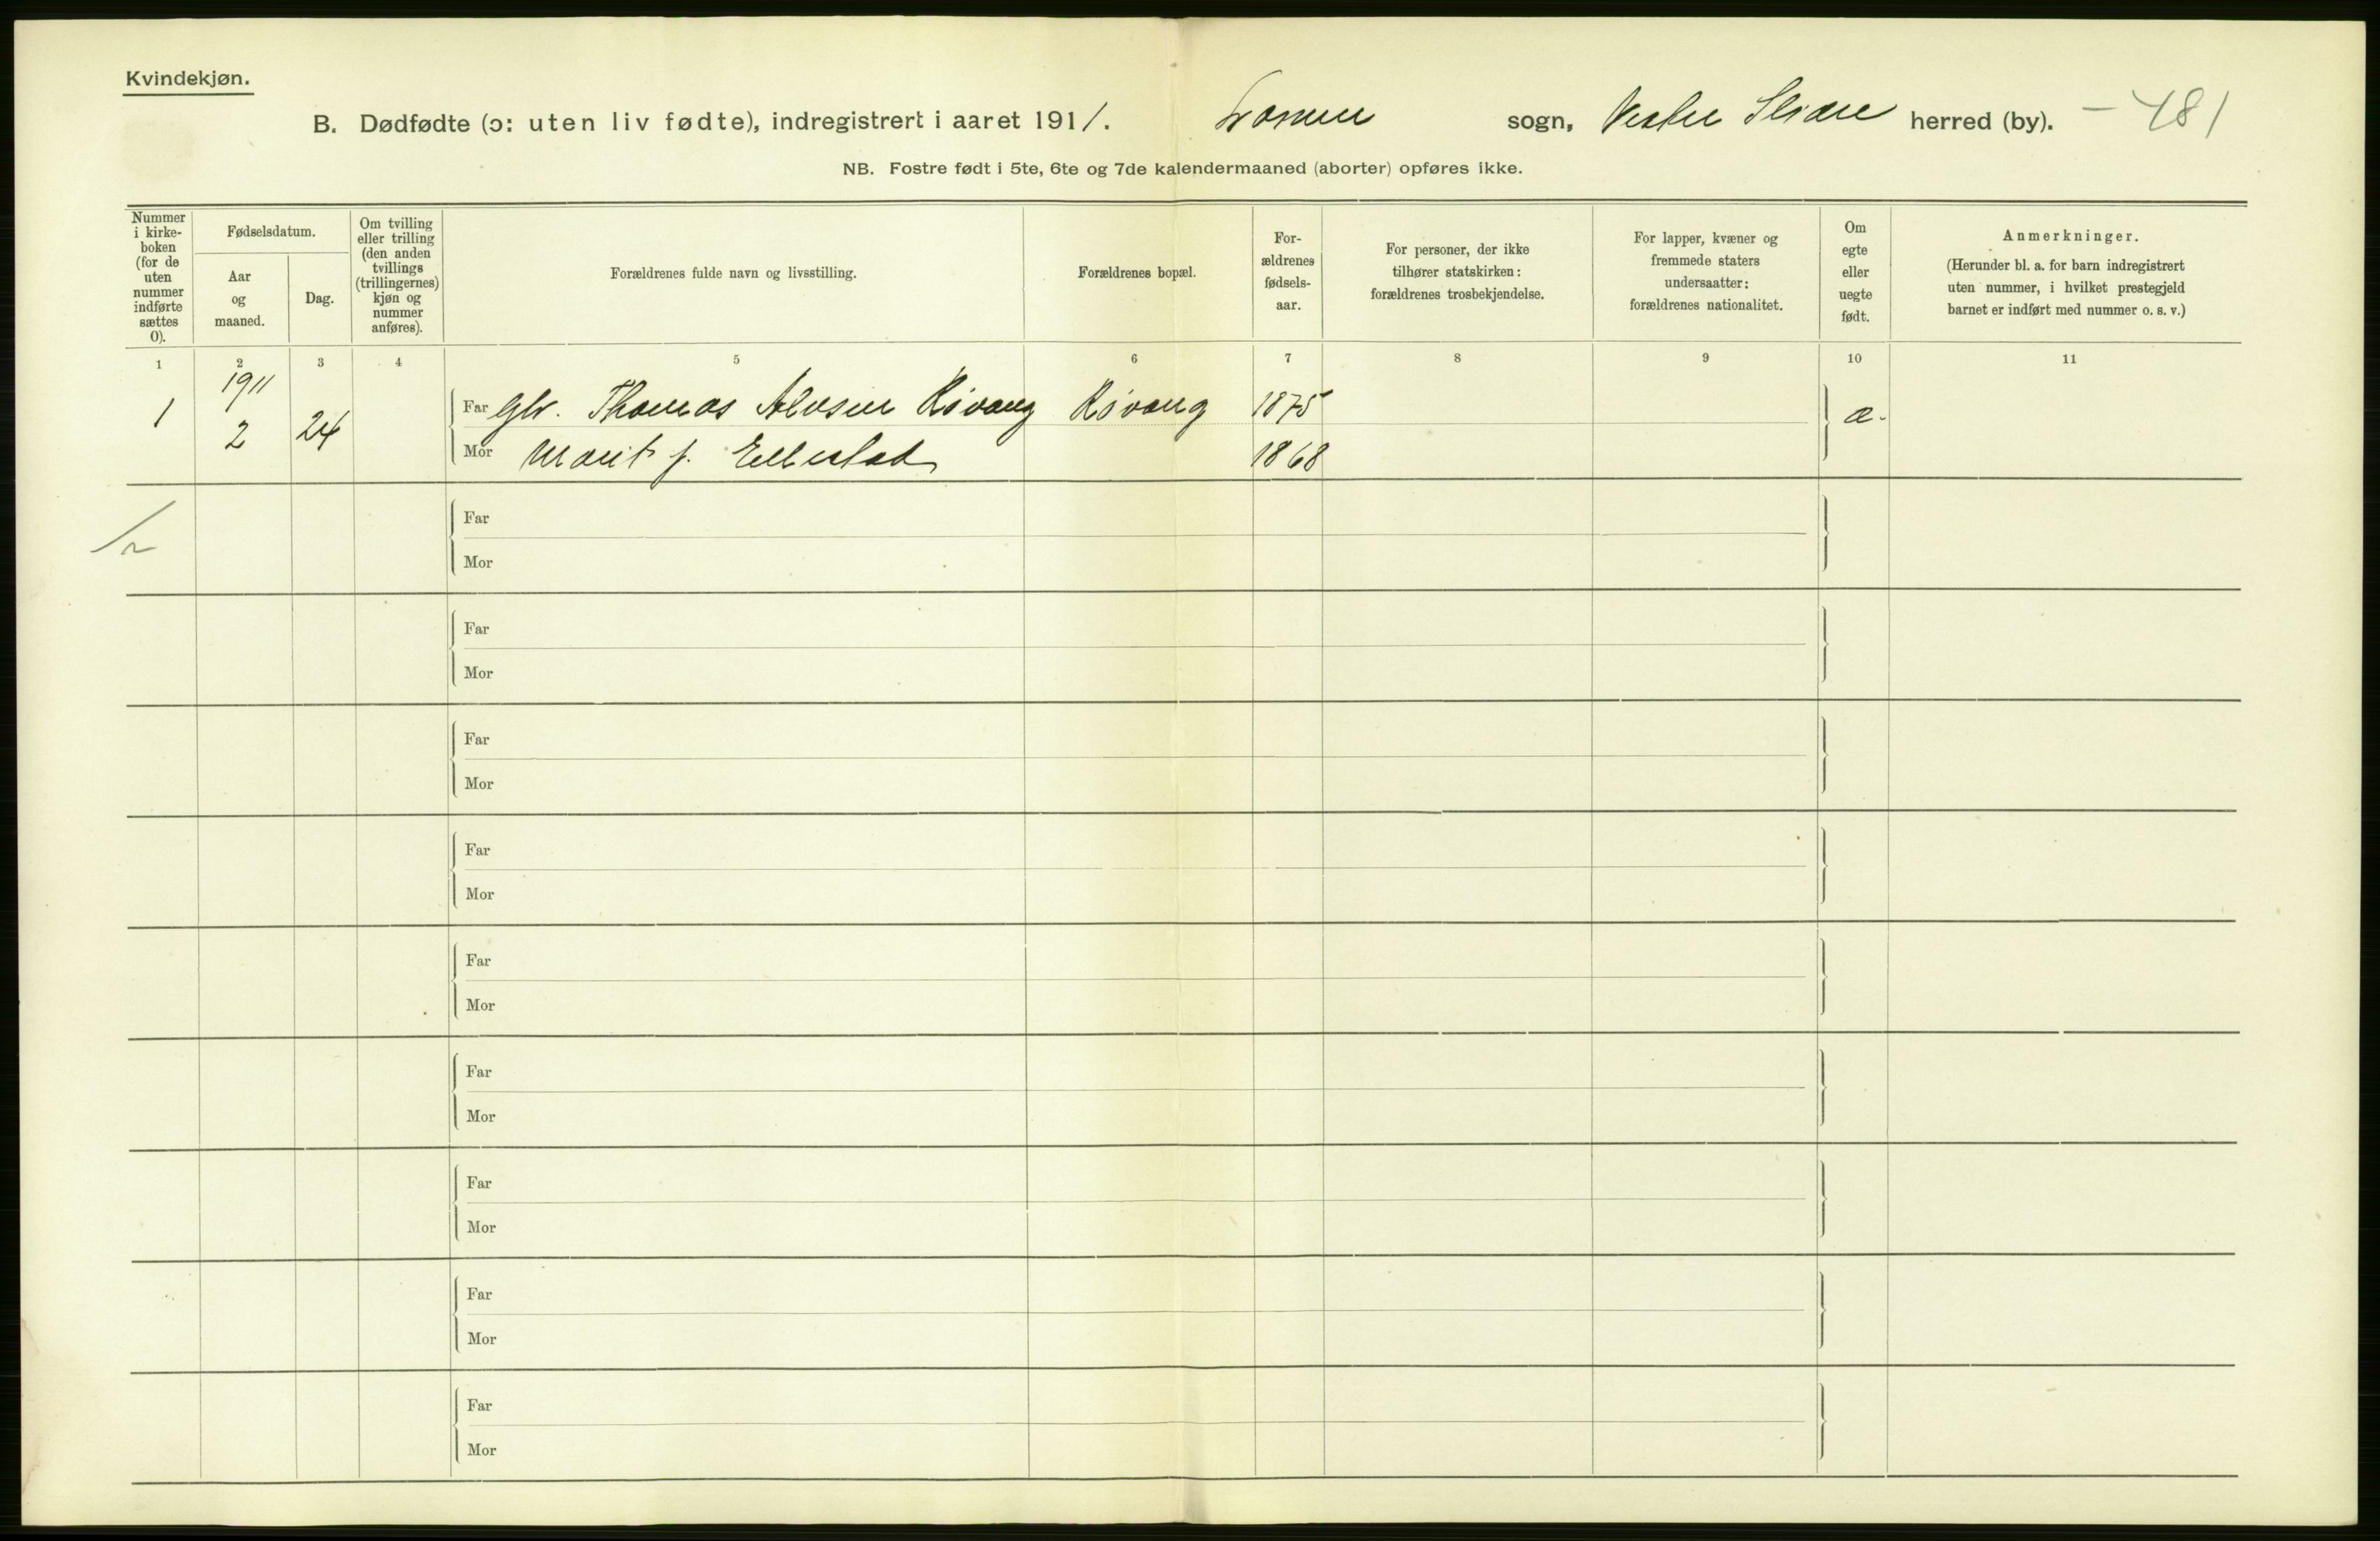 Kvindekjøn.
B. Dødfødte (ɔ: uten liv fødte), indregistrert i aaret 1911. Lomen sogn, Vestre Slidre herred (by). – 481
NB. Fostre født i 5te, 6te og 7de kalendermaaned (aborter) opføres ikke.
Nummer i kirke-boken (for de uten nummer indførte sættes 0).
Fødselsdatum.
Aar og maaned.
Dag.
Om tvilling eller trilling (den anden tvillings (trillingernes) kjøn og nummer anføres).
Forældrenes fulde navn og livsstilling.
Forældrenes bopæl.
For-ældrenes fødsels-aar.
For personer, der ikke tilhører statskirken: forældrenes trosbekjendelse.
For lapper, kvæner og fremmede staters undersaatter: forældrenes nationalitet.
Om egte eller uegte født.
Anmerkninger.
(Herunder bl. a. for barn indregistrert uten nummer, i hvilket prestegjeld barnet er indført med nummer o. s. v.)
1 2 3 4 5 6 7 8 9 10 11
1911
1 2 24 Far Thomas Røvang Røvang 1875
Mor Marit f. Ellestad 1868
Far
Mor
Far
Mor
Far
Mor
Far
Mor
Far
Mor
Far
Mor
Far
Mor
Far
Mor
Far
Mor